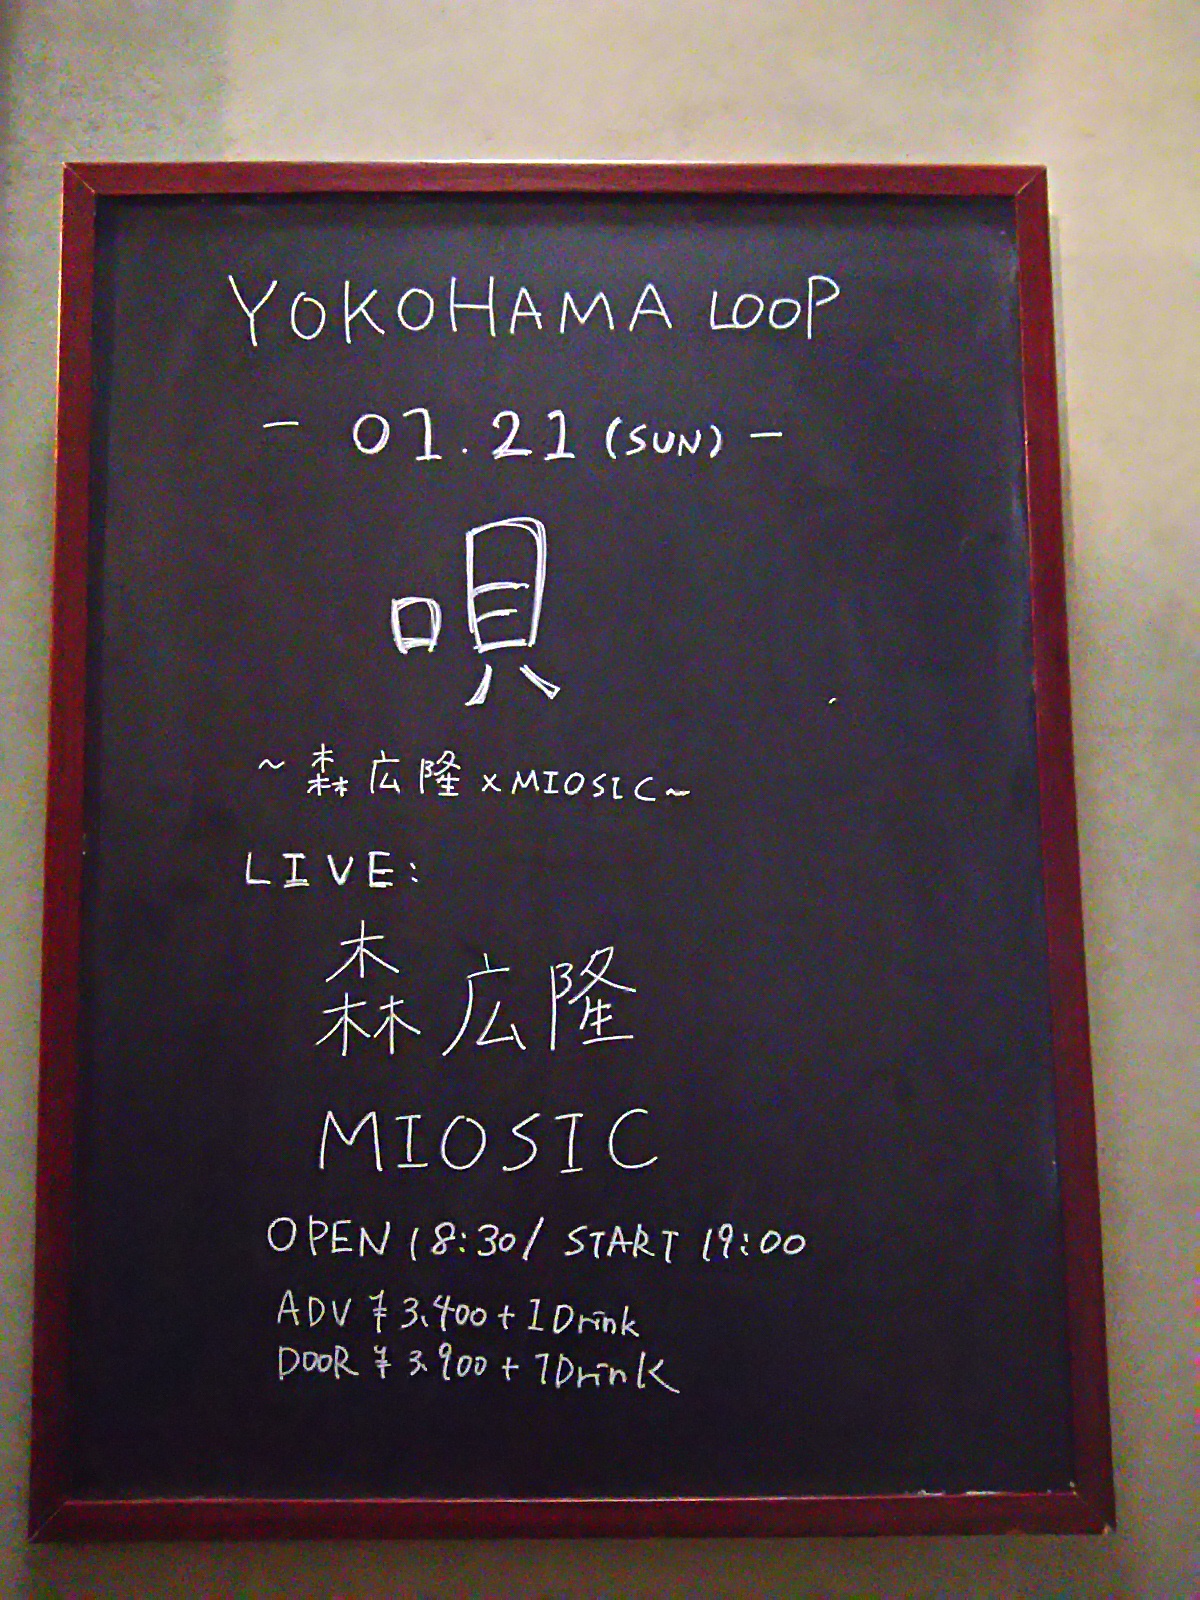 YOKOHAMA LOOP
- 01.21 (SUN) -
唄
~ 森広隆 × MIOSIC ~
LIVE:
森広隆
MIOSIC
OPEN 18:30/ START 19:00
ADV ¥3,400 + 1 Drink
DOOR ¥3,900 + 1 Drink